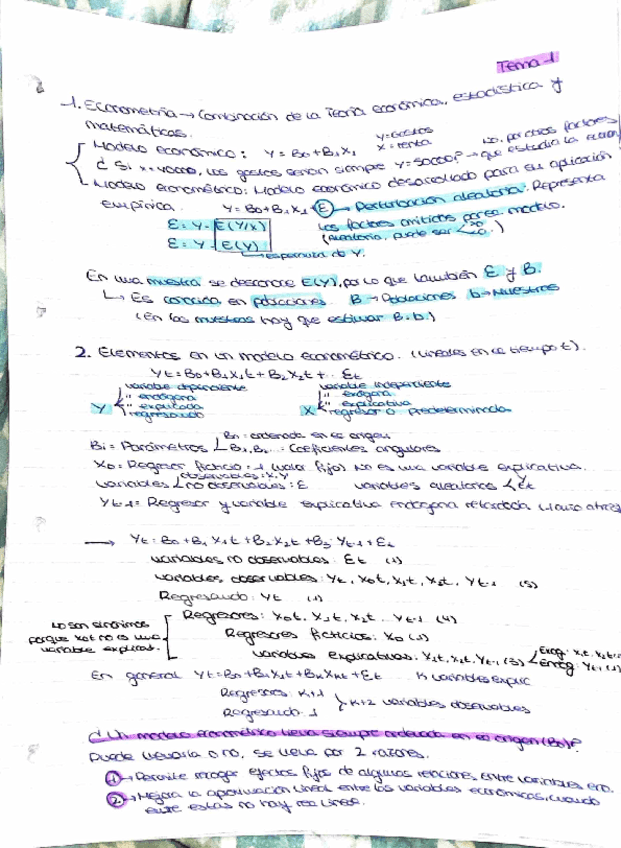 Tema-1
1. Econometría → Combinación de la Teoría económica, estadística y
matemáticas.
Modelo económico: Y = B0 + B1 X1 Y = Gastos X = renta No, por otros factores
¿ Si x = 40000, los gastos serán siempre Y = 50000? → que estudia la econ.
Modelo econométrico: Modelo económico desarrollado para su aplicación
empírica. Y = B0 + B1 X1 + Ɛ → Perturbación aleatoria. Representa
Ɛ = Y - E(Y/X) los factores omitidos por el modelo.
Ɛ = Y - E(Y) (Aleatoria, puede ser >0 <0.)
→ esperanza de Y.
En una muestra se desconoce E(Y), por lo que también Ɛ y B.
↳ Es conocida en poblaciones. B → Poblaciones b → Muestras
(En las muestras hay que estimar B. b.)
2. Elementos en un modelo econométrico. (Lineales en el tiempo t).
Yt = B0 + B1 X1t + B2 X2t + ... Ɛt
variable dependiente variable independiente
" endógena " exógena
Y " explicada X " explicativa
regresando regresor o predeterminada
B0 = ordenada en el origen
Bi = Parámetros B1, B2 ... = Coeficientes angulares
X0 = Regresor ficticio = 1 (valor fijo) No es una variable explicativa.
variables observables: X, Y no observables: Ɛ variables aleatorias Y Ɛt
Yt-1 = Regresor y variable explicativa endógena retardada (1 año atrás)
→ Yt = B0 + B1 X1t + B2 X2t + B3 Yt-1 + Ɛt
variables no observables: Ɛt (1)
variables observables: Yt, X0t, X1t, X2t, Yt-1 (5)
Regresando: Yt (1)
Regresores: X0t, X1t, X2t, Yt-1 (4)
No son sinónimos porque X0t no es una variable explicat.
Regresores ficticios: X0 (1)
variables explicativas: X1t, X2t, Yt-1 (3) Exóg: X1t, X2t Endóg: Yt-1 (1)
En general Yt = B0 + B1 X1t + Bk Xkt + Ɛt K variables explic
Regresores: K+1
K+2 variables observables
Regresando: 1
¿ Un modelo econométrico lleva siempre ordenada en el origen (B0)?
Puede llevarla o no, se lleva por 2 razones.
1 → Permite recoger efectos fijos de algunas relaciones entre variables eco.
2 → Mejora la aproximación lineal entre las variables económicas, cuando
entre estas no hay rel. lineal.